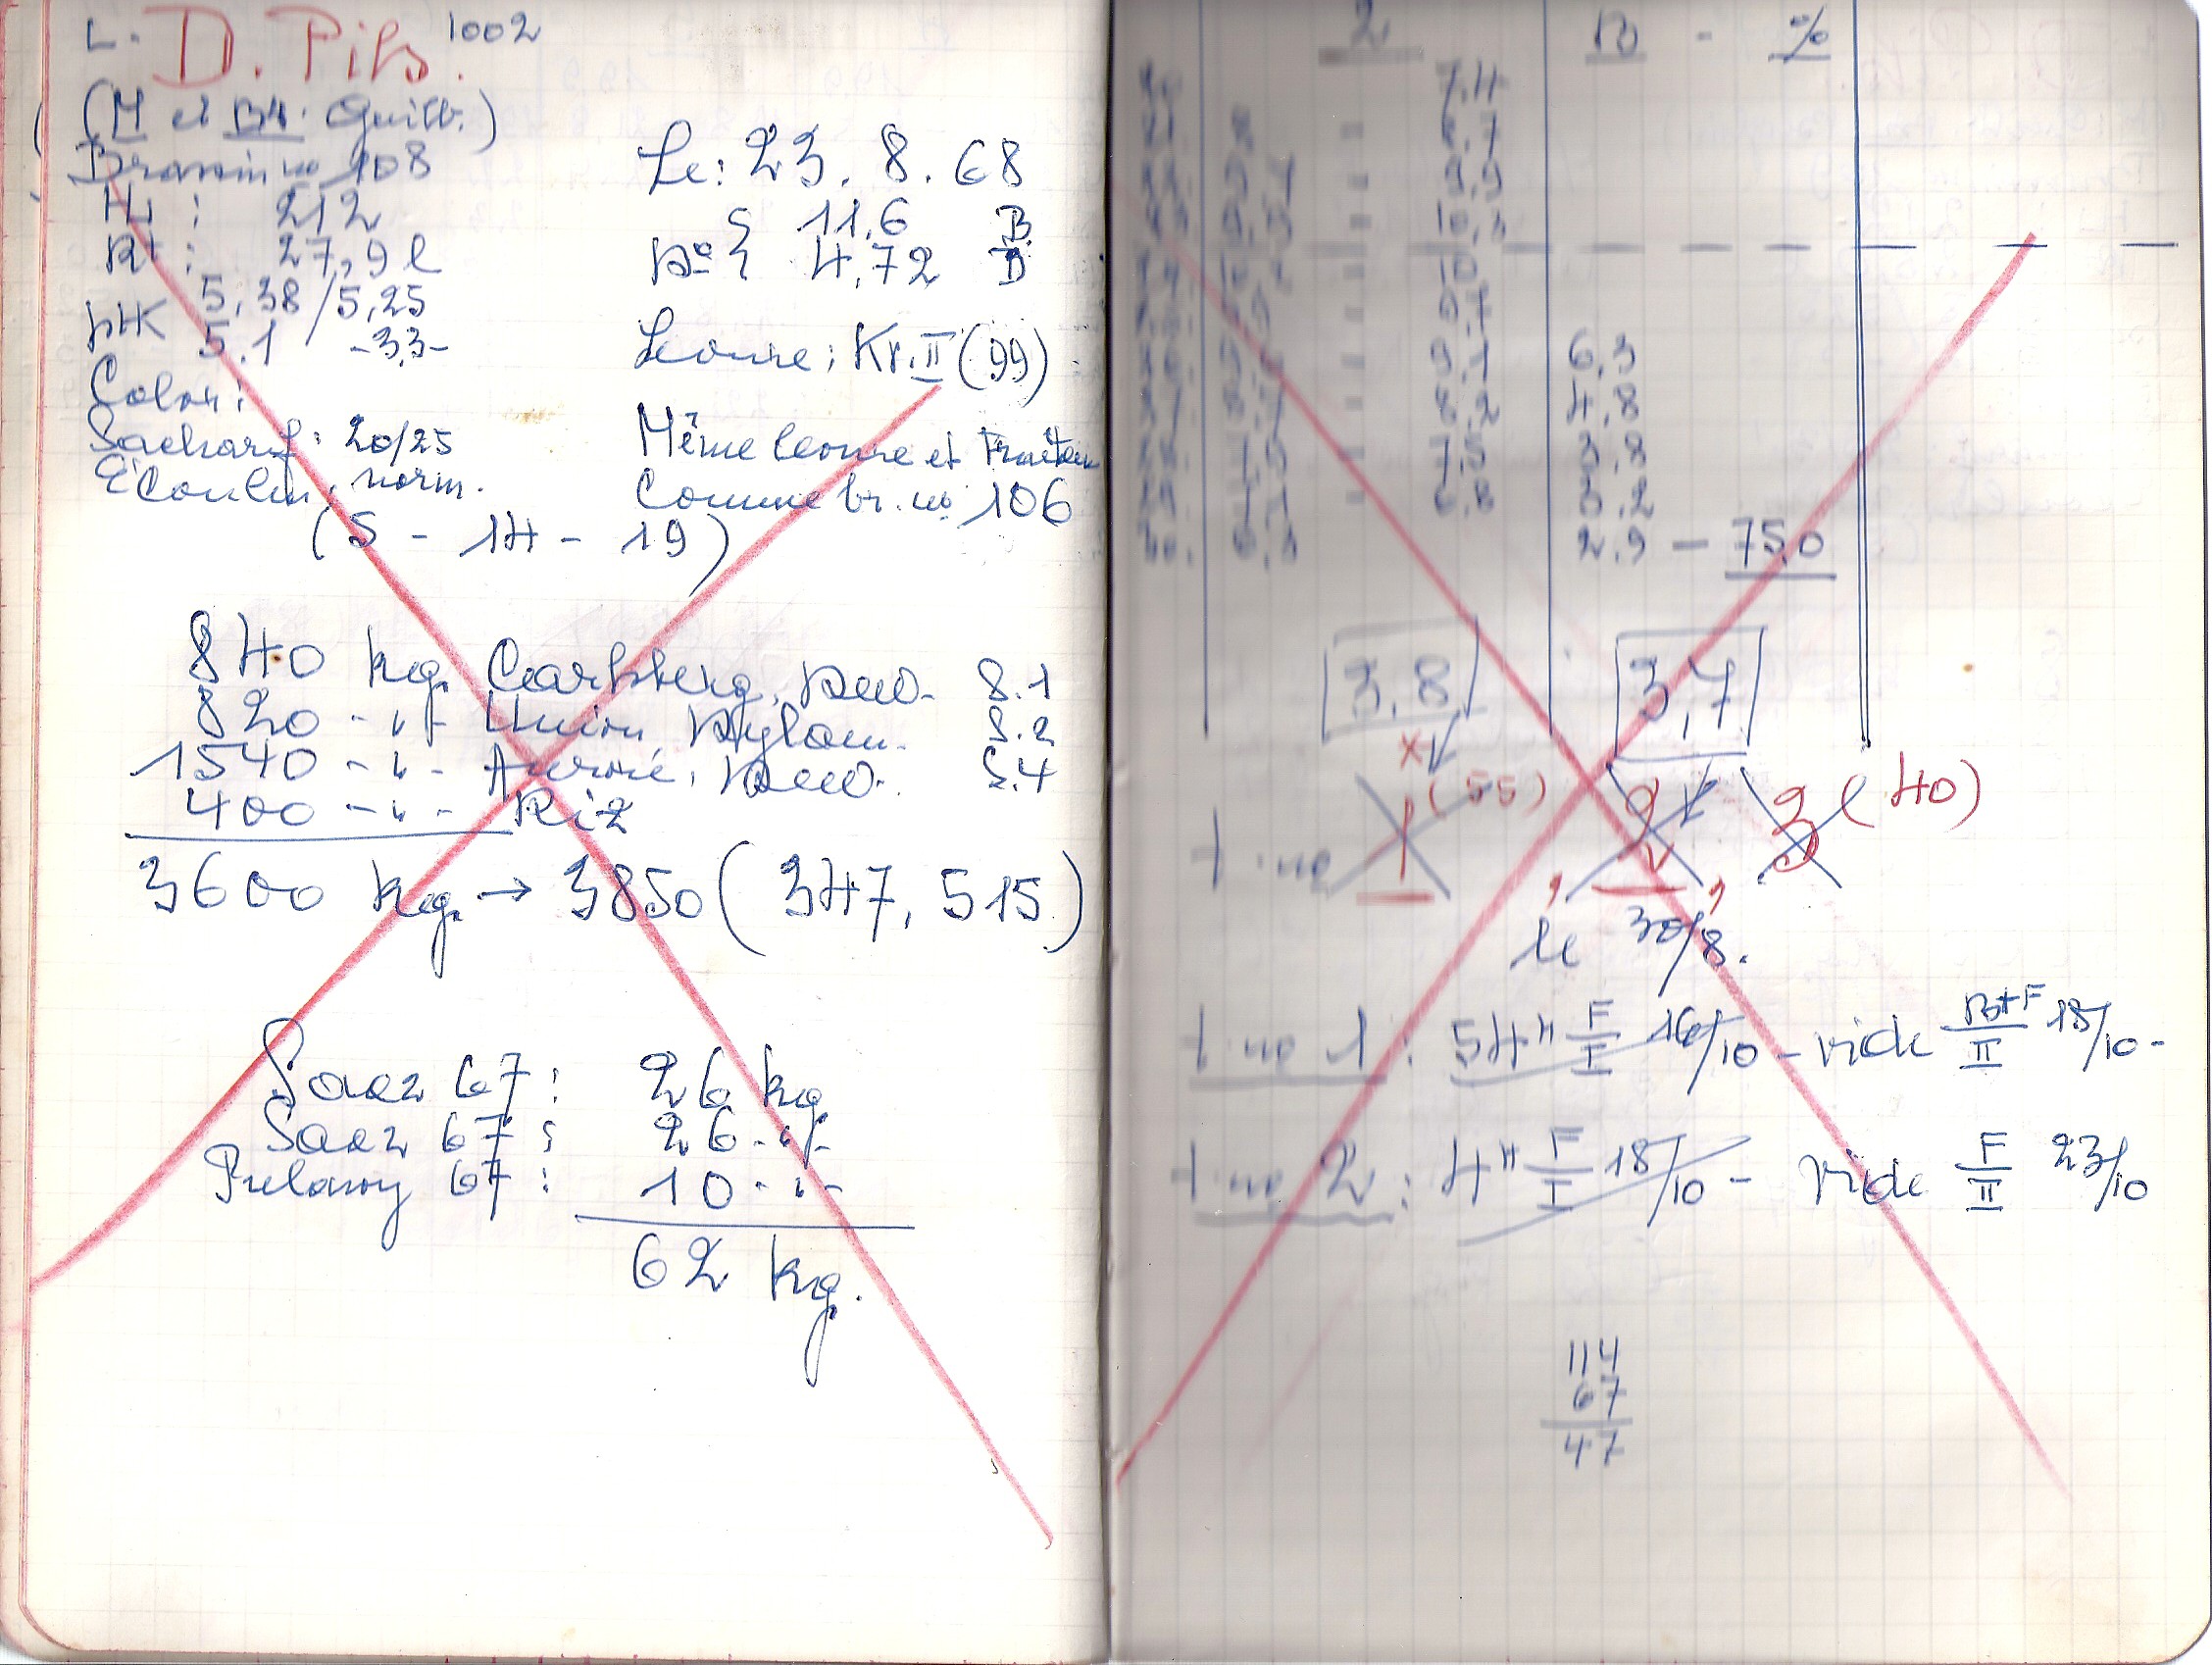 L. D. Pils. 1002
(M et B4. Guilb.)
Brassin no 108
Le: 23. 8. 68
HL : 212
11,6 B
Rt : 27,9 l
4,72 D
pH 5,38 / 5,25
5.1 -3,3-
Levure: Kr. II (99)
Color:
Sacharif: 20/25
Même levure et traitem
Ecoulem. norm.
Comme br. no 106
(5 - 14 - 19)
840 kg. Carlsberg, 8.1
820 -"- Union, 8.2
1540 -"- 5.4
400 -"- Riz
3600 kg. → 3850 (347, 515)
Saaz 67: 26 kg
Saaz 67: 26 -"-
Pulawy 67: 10 -"-
62 kg.
2 B - %
20 7.4
21 8 = 8.7
22. 9.4 = 9.9
23. 9.9 = 10.3
= 10
= 9.7
26. = 9.1 6.3
27. 8.7 = 8.2 4.8
28. 7,9 = 7,5 3.8
29. 7.1 = 6.8 3.2
30. 6.3 2.9 - 75,0
3,8 3,7
t. no 1 (55) 2 3 (40)
le 30/8.
t. no 1 : 54" F/I 16/10 - vide B+F/II 18/10 -
t. no 2 : 4" F/I 18/10 - vide F/II 23/10
114
67
47